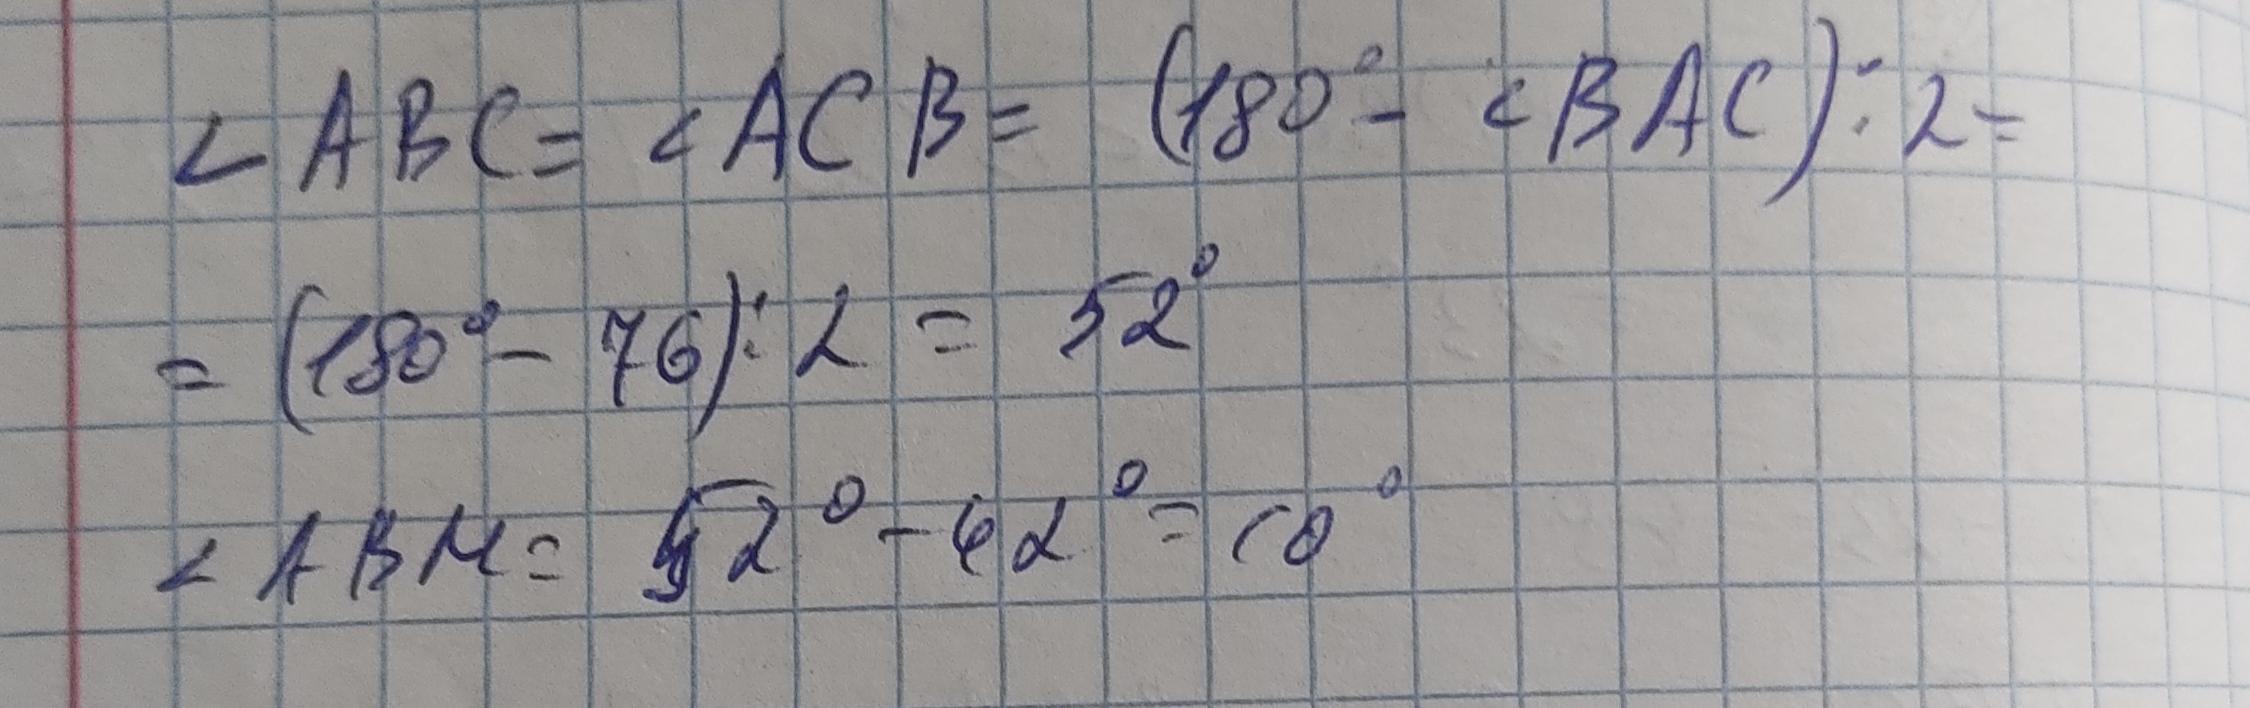 ∠ABC = ∠ACB = (180° - ∠BAC) : 2 =
= (180° - 76) : 2 = 52°
∠ABM = 52° - 42° = 10°